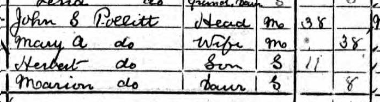 John S Pollitt Head M 38
Mary A do Wife M 38
Herbert do Son S 11
Marion do Daur S 8